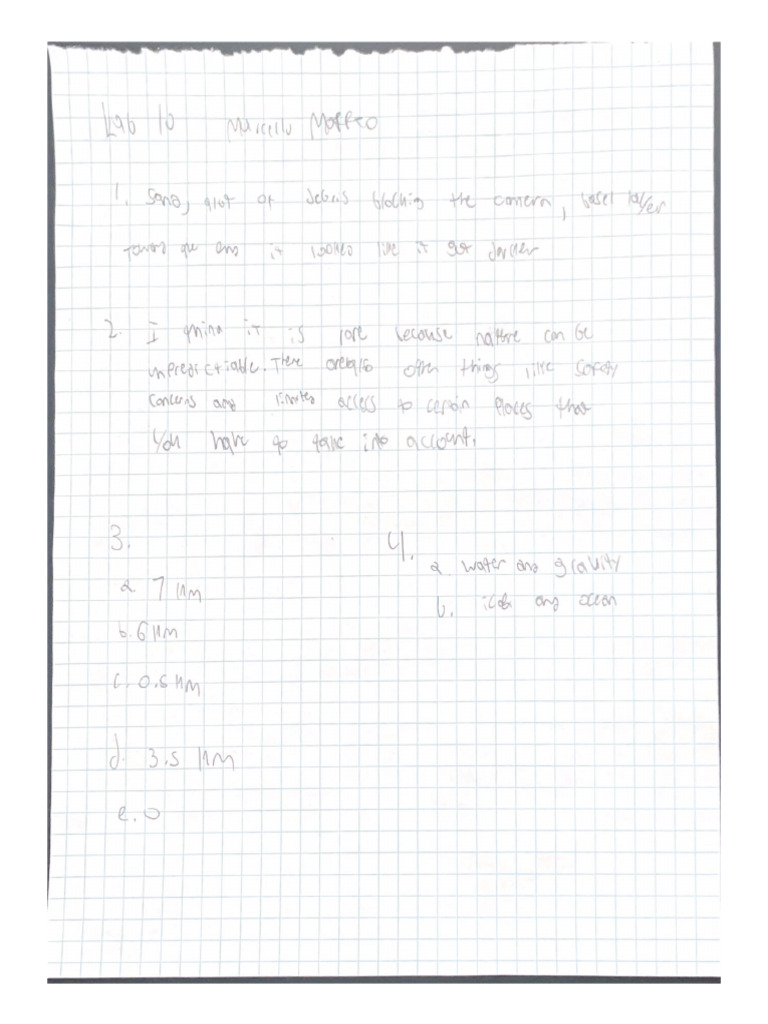 Lab 10 Marcello Maffeo
1. Sand, alot of debris blocking the camera, basel layer
toward the end it looked like it got darker
2. I think it is rare because nature can be
unpredictiable. There are also other things like safety
concerns and limited access to certain places that
you have to take into account.
3.
a. 7 μm
b. 6 μm
c. 0.5 μm
d. 3.5 μm
e. 0
4.
a. water and gravity
b. and ocean